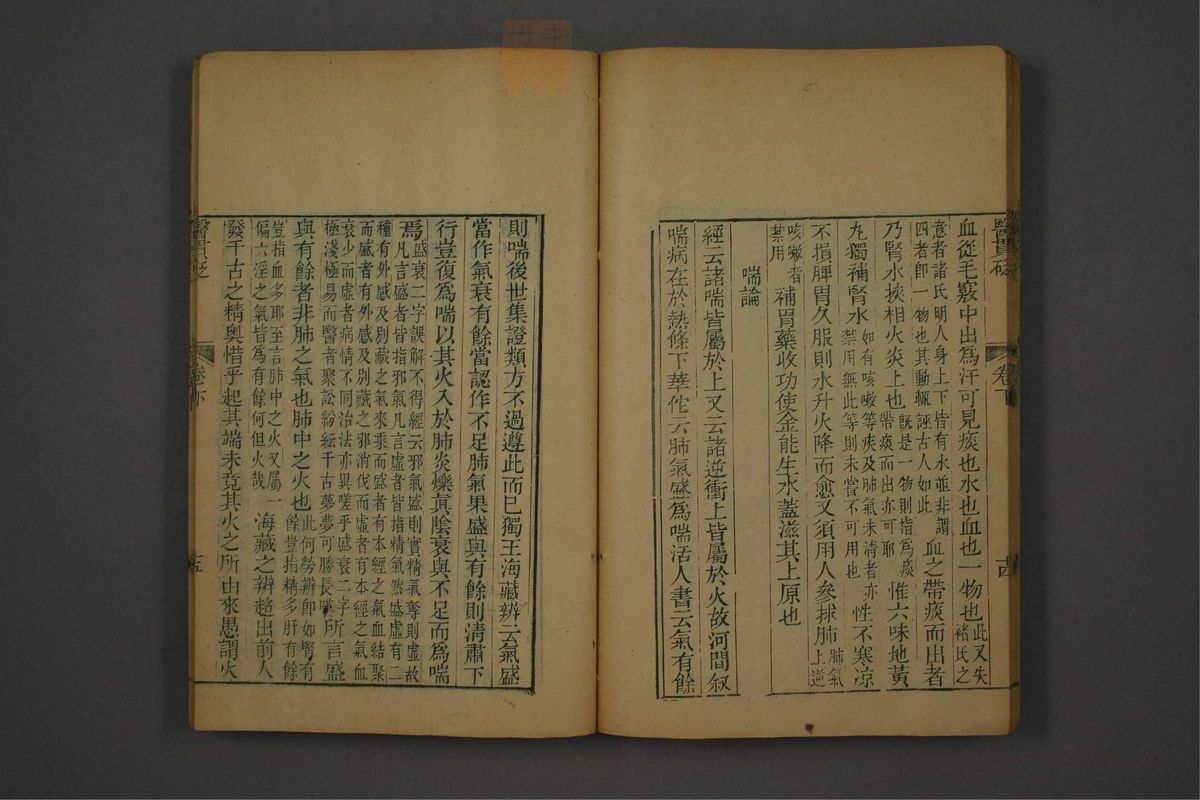 醫貫砭 卷下 十四
血從毛竅中出爲汗可見痰也水也血也一物也此又失褚氏之
意者諸氏明人身上下皆有水並非謂四者即一物也其動輒誣古人如此血之帶痰而出者
乃腎水挾相火炎上也既是一物則指爲痰帶痰而出亦可耶惟六味地黃
丸獨補腎水如有咳嗽等疾及肺氣未清者亦禁用無此等則未嘗不可用也性不寒凉
不損脾胃久服則水升火降而愈又須用人參救肺肺氣上逆
咳嗽者禁用補胃藥收功使金能生水蓋滋其上原也
喘論
經云諸喘皆屬於上又云諸逆衝上皆屬於火故河間叙
喘病在於熱條下華佗云肺氣盛爲喘活人書云氣有餘
則喘後世集證類方不過遵此而已獨王海藏辨云氣盛
當作氣衰有餘當認作不足肺氣果盛與有餘則清肅下
行豈復爲喘以其火入於肺炎爍眞陰衰與不足而爲喘
焉盛衰二字誤解不得經云邪氣盛則實精氣奪則虛故凡言盛者皆指邪氣凡言虛者皆指精氣然盛虛有二
種有外感及別藏之氣來乘而盛者有本經之氣血結聚而盛者有外感及別藏之邪消伐而虛者有本經之氣血
衰少而虛者病情不同治法亦異嗟乎盛衰二字極淺極易而醫者聚訟紛紜千古夢夢可勝長嘆所言盛
與有餘者非肺之氣也肺中之火也此何勞辨即如腎有餘豈指精多肝有餘
豈指血多耶至言肺中之火又屬一偏六淫之氣皆爲有餘何但火哉海藏之辨超出前人
發千古之精奧惜乎起其端未竟其火之所由來愚謂火
醫貫砭 卷下 十五